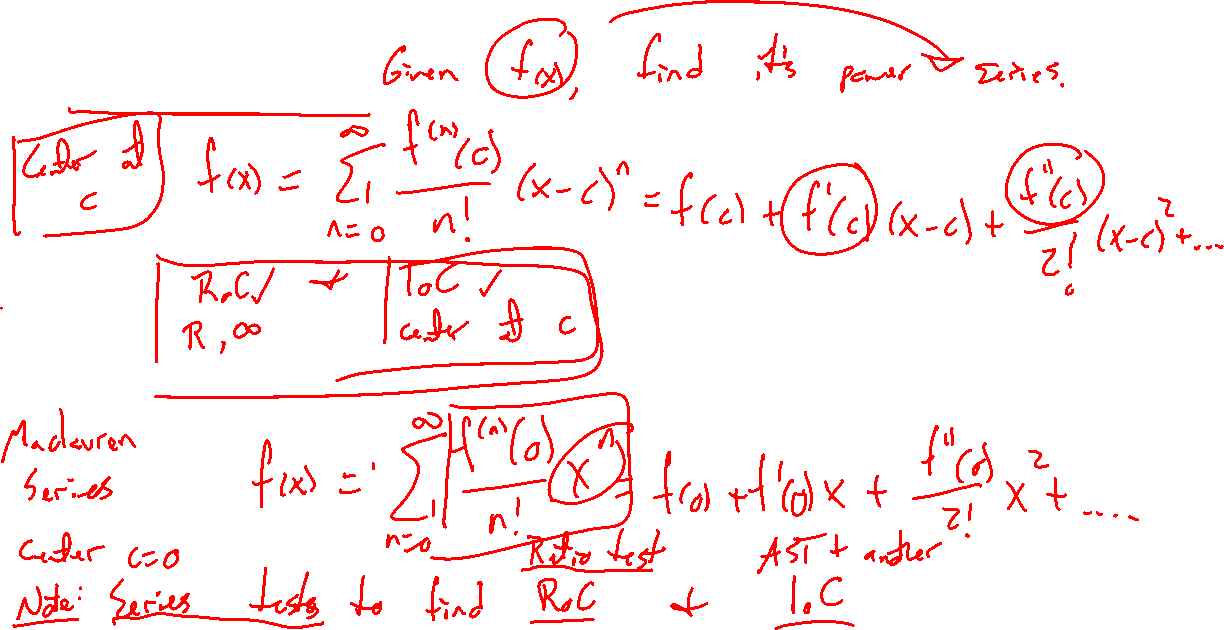 Given f(x), find it's power series.
Center at c
f(x) = ∑_{n=0}^{∞} f^{(n)}(c)/n! (x-c)^n = f(c) + f'(c)(x-c) + f''(c)/2! (x-c)^2 + ....
RoC ✓ + IoC ✓
R, ∞ center at c
Maclauren Series
f(x) = ∑_{n=0}^{∞} f^{(n)}(0)/n! x^n = f(0) + f'(0)x + f''(0)/2! x^2 + ....
center c=0
Ratio test AST + another
Note: Series tests to find RoC + IoC